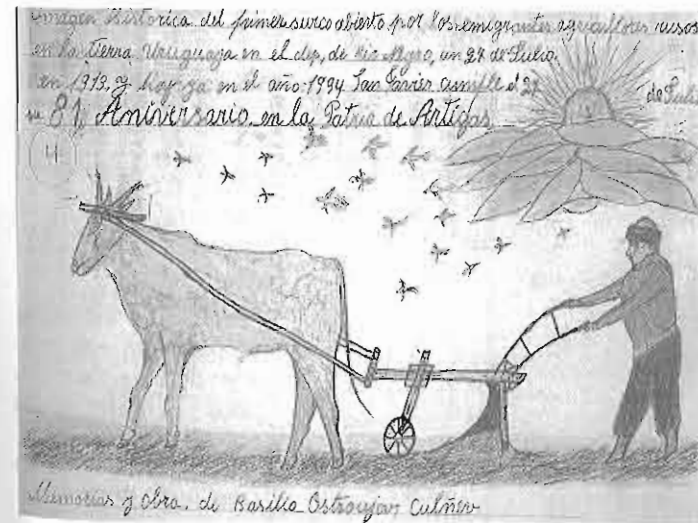 imagen Historica del primer surco abierto por los emigrantes agricultores rusos
en la tierra Uruguaya en el dep, de Rio Negro, un 27 de Julio.
en 1913, y hoy ya en el año: 1994 San Javier cumple el 27 de Julio
81, Aniversario en la Patria de Artigas
Memorias y Obra. de Basilio